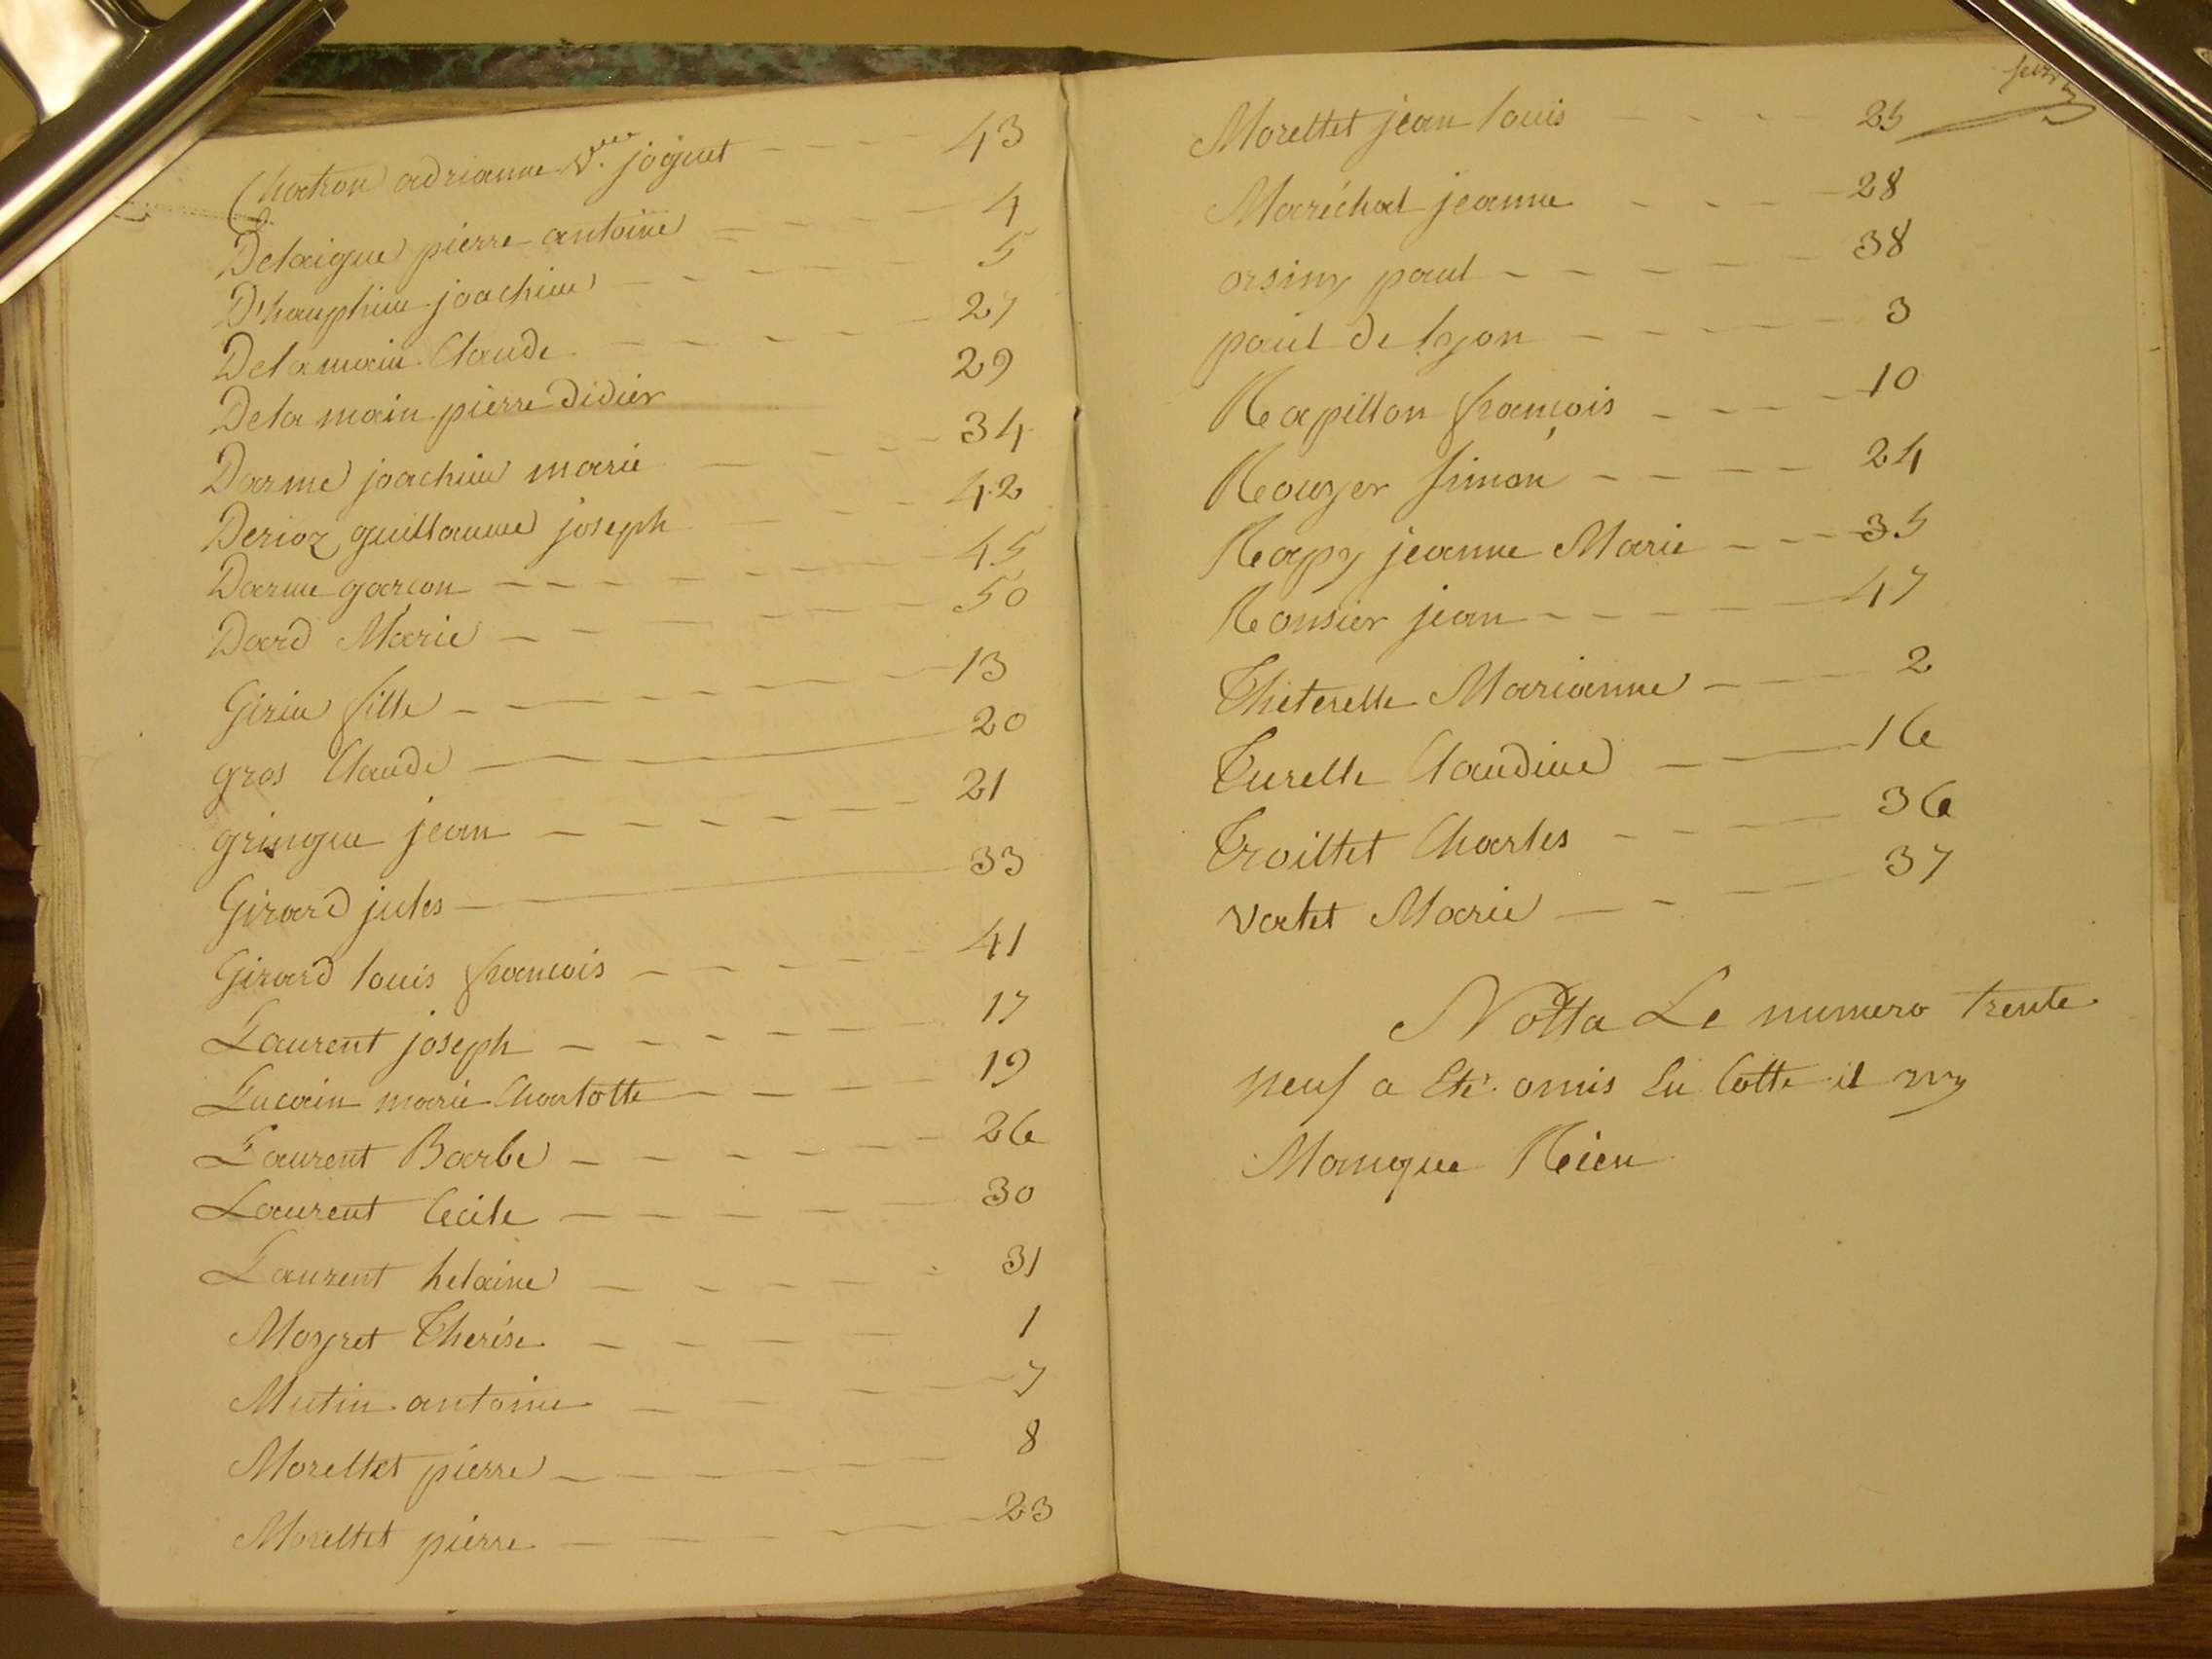 Chatron adrianne v.ve joguet - - - 43
Delaigue pierre antoine - - - 4
D'hauphin joachim - - - 5
Delamain Claude - - - 27
Delamain pierre Didier 29
Darme joachim marie - - - 34
Derioz guillaume joseph - - - 42
Darme garcon - - - 45
Dard Marie - - - 50
Girin fille - - - 13
gros Claude - - - 20
gringue jean - - - 21
Girard jules - 33
Girard louis francois - - - 41
Laurent joseph - - - 17
Lucain marie Charlotte - - - 19
Laurent Barbe - - - 26
Laurent Cecile - - - 30
Laurent helaine - - - 31
Moyret Therése - - - 1
Mutin antoine - - - 7
Morellet pierre - - - 8
Morellet pierre - - - 23
Morellet jean louis - - - 25
Maréchal jeanne - - - 28
orsiny paul - - - 38
paul de lyon - - - 3
Rapillon françois - - - 10
Rouyer simon - - - 24
Rapy jeanne Marie - - - 35
Ronsier jean - - - 47
Theterelle Marianne - - - 2
Turelle Claudine - - - 16
Troillet Charles - - - 36
vallet Marie - - - 37
Notta Le numero trente
neuf a Eté omis En Cotte il ny
Manque Rien